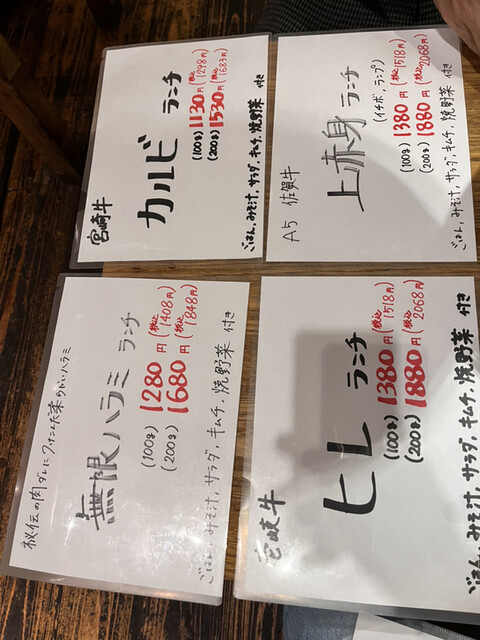 宮崎牛
カルビ ランチ
(100g) 1130円 (税込1298円)
(200g) 1530円 (税込1683円)
ごはん,みそ汁,サラダ,キムチ,焼野菜 付き
A5 佐賀牛
上赤身 ランチ
(イチボ,ランプ)
(100g) 1380円 (税込1518円)
(200g) 1880円 (税込2068円)
ごはん,みそ汁,サラダ,キムチ,焼野菜 付き
秘伝の肉ダレにつけこんだ柔らかいハラミ
無限ハラミ ランチ
(100g) 1280円 (税込1408円)
(200g) 1680円 (税込1848円)
ごはん,みそ汁,サラダ,キムチ,焼野菜 付き
宮崎牛
ヒレ ランチ
(100g) 1380円 (税込1518円)
(200g) 1880円 (税込2068円)
ごはん,みそ汁,サラダ,キムチ,焼野菜 付き